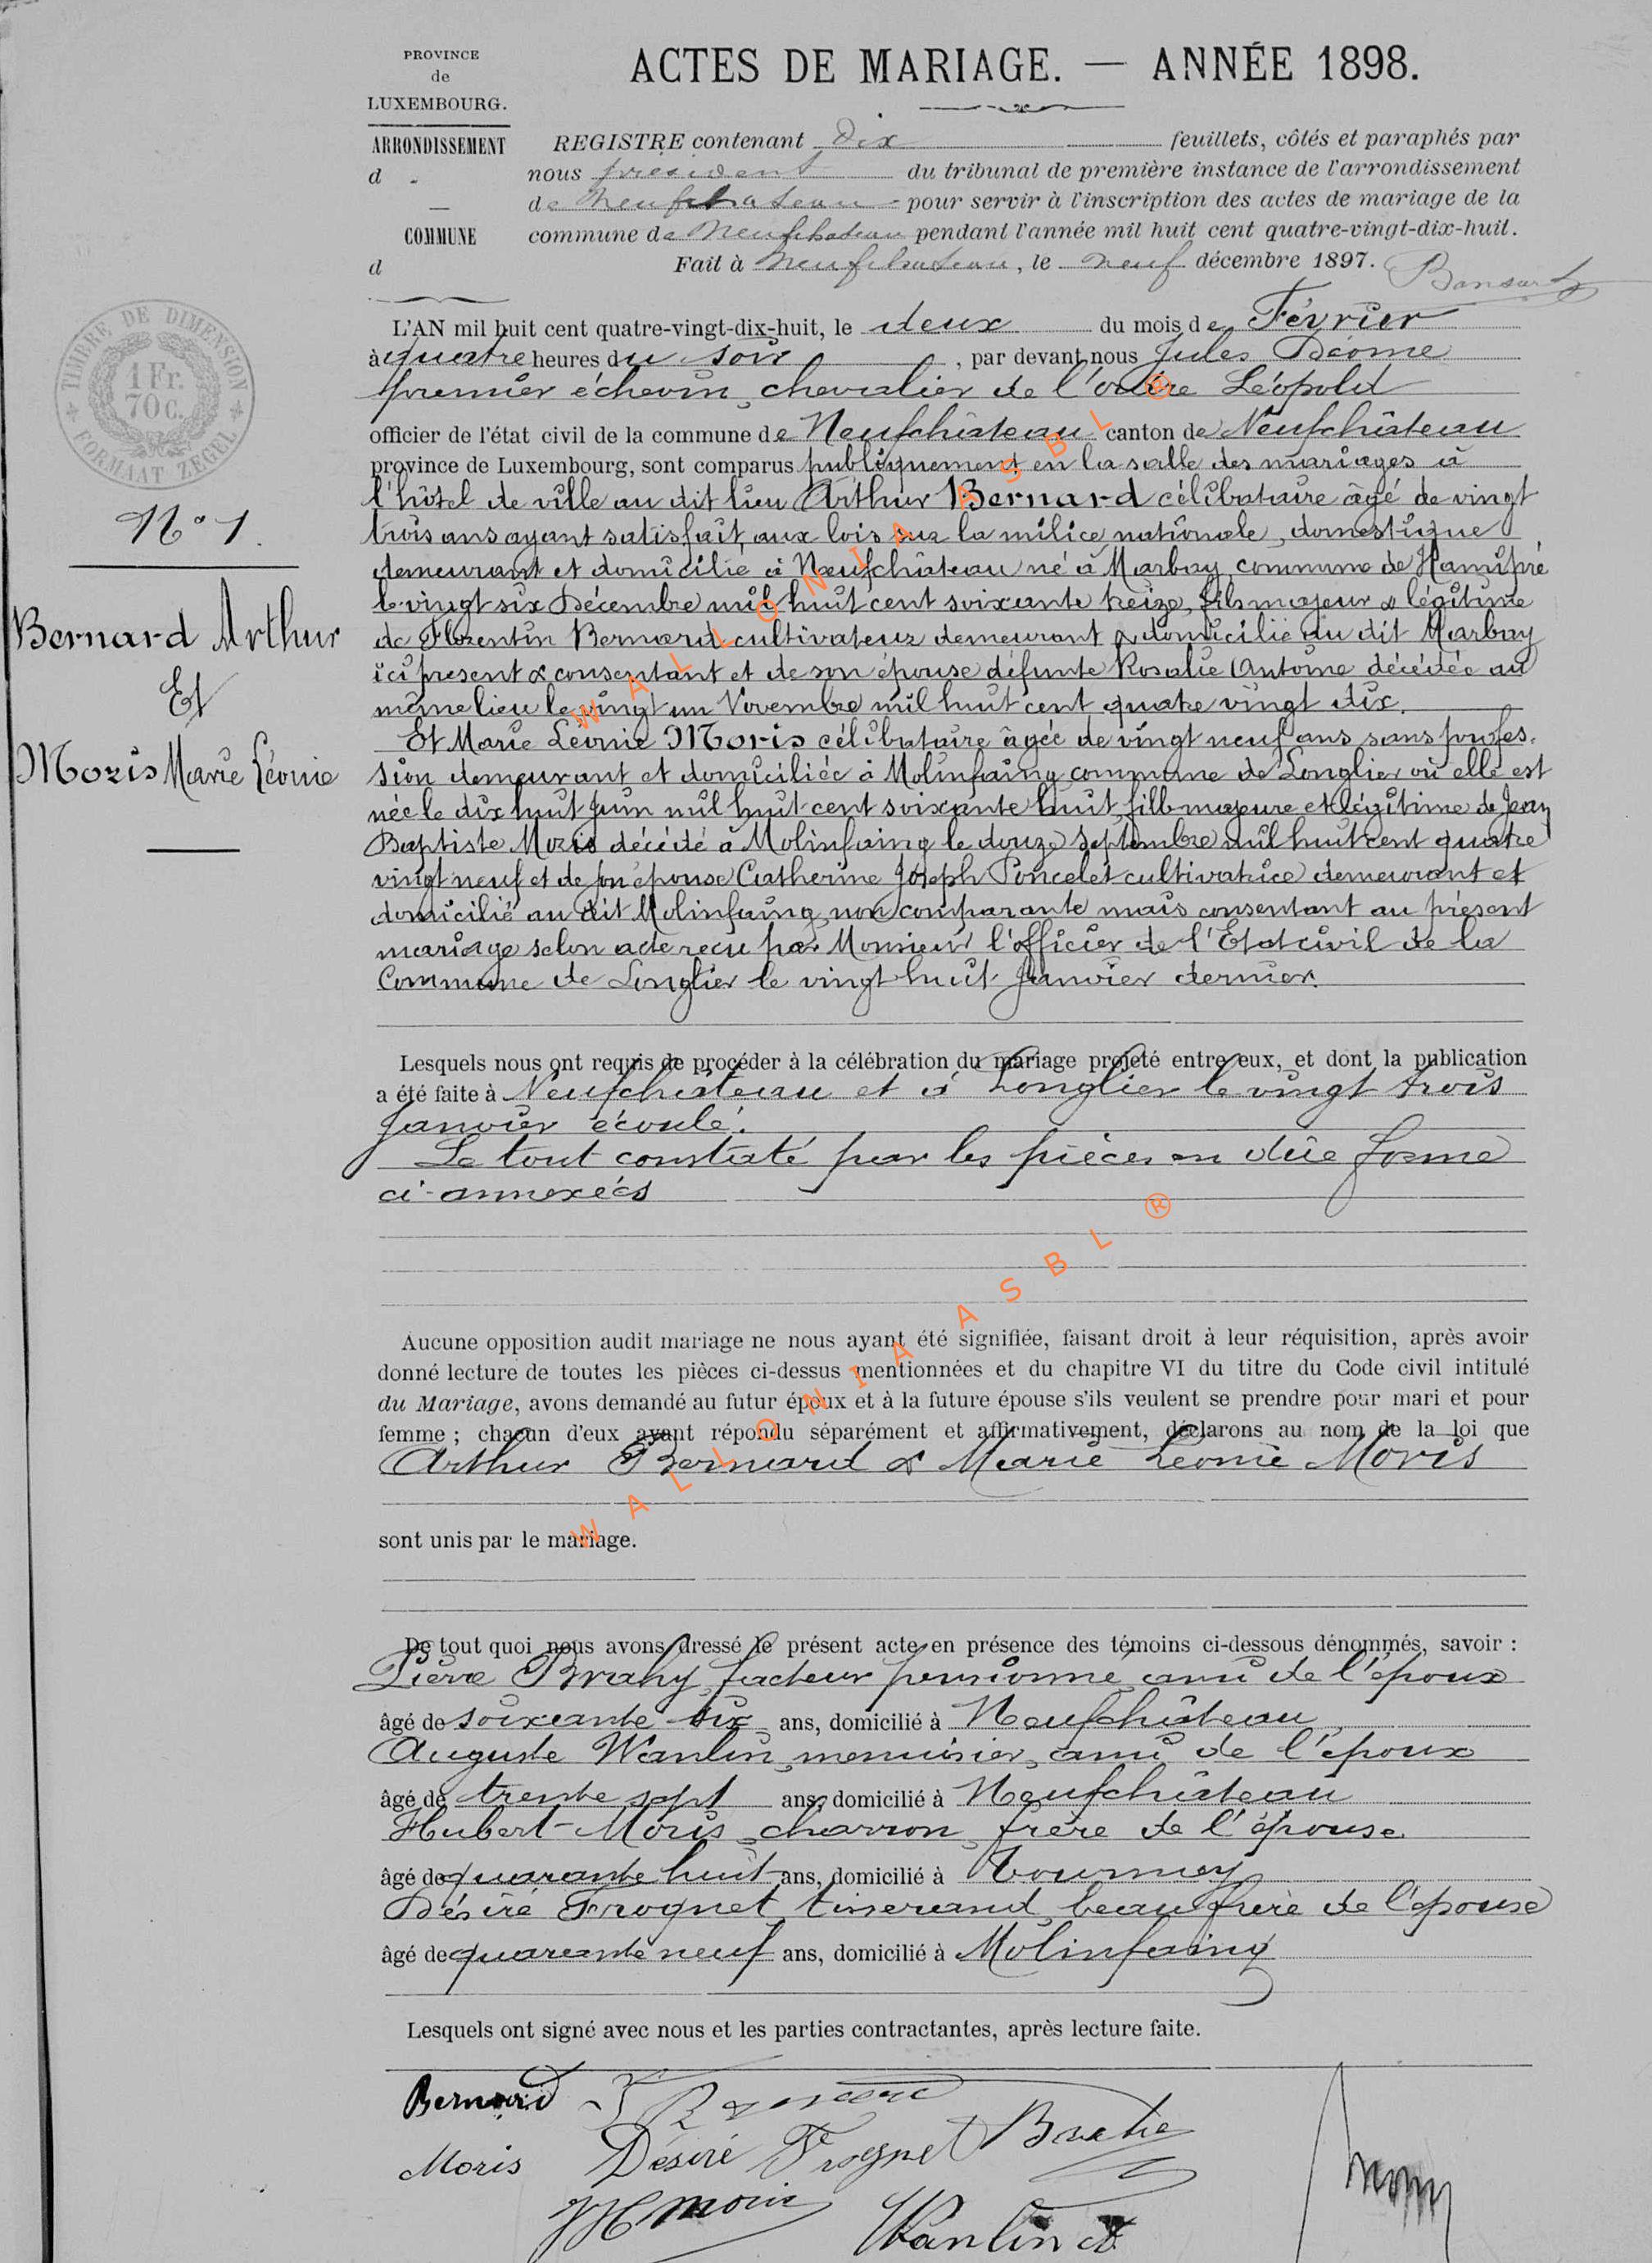 PROVINCE
de
LUXEMBOURG.
ARRONDISSEMENT
d
COMMUNE
d
ACTES DE MARIAGE. — ANNÉE 1898.
REGISTRE contenant Dix feuillets, côtés et paraphés par
nous président du tribunal de première instance de l'arrondissement
de Neufchateau pour servir à l'inscription des actes de mariage de la
commune de Neufchateau pendant l'année mil huit cent quatre-vingt-dix-huit.
Fait à Neufchateau, le neuf décembre 1897.
TIMBRE DE DIMENSION
1 Fr.
70 C.
FORMAAT ZEGEL
N° 1.
Bernard Arthur
Et
Moris Marie Léonie
L'AN mil huit cent quatre-vingt-dix-huit, le deux du mois de Février
à quatre heures du soir, par devant nous Jules Déome
premier échevin, chevalier de l'ordre Léopold
officier de l'état civil de la commune de Neufchâteau canton de Neufchâteau
province de Luxembourg, sont comparus publiquement en la salle des mariages à
l'hôtel de ville au dit lieu Arthur Bernard célibataire âgé de vingt
trois ans ayant satisfait aux lois sur la milice nationale, domestique
demeurant et domicilié à Neufchâteau né à Marbay commune de Hamipré
le vingt six Décembre mil huit cent soixante treize, fils majeur & légitime
de Florentin Bernard cultivateur demeurant & domicilié au dit Marbay
ici présent & consentant et de son épouse défunte Rosalie Antoine décédée au
même lieu le vingt un Novembre mil huit cent quatre vingt dix.
Et Marie Léonie Moris célibataire âgée de vingt neuf ans sans profes-
sion demeurant et domiciliée à Molinfaing commune de Longlier où elle est
née le dix huit Juin mil huit cent soixante huit, fille majeure et légitime de Jean
Baptiste Moris décédé à Molinfaing le douze Septembre mil huit cent quatre
vingt neuf et de son épouse Catherine Joseph Poncelet cultivatrice demeurant et
domicilié au dit Molinfaing, non comparante mais consentant au présent
mariage selon acte reçu par Monsieur l'officier de l'Etat civil de la
Commune de Longlier le vingt huit Janvier dernier.
Lesquels nous ont requis de procéder à la célébration du mariage projeté entre eux, et dont la publication
a été faite à Neufchâteau et à Longlier le vingt trois
Janvier écoulé.
Le tout constaté par les pièces en dûe forme
ci-annexées
Aucune opposition audit mariage ne nous ayant été signifiée, faisant droit à leur réquisition, après avoir
donné lecture de toutes les pièces ci-dessus mentionnées et du chapitre VI du titre du Code civil intitulé
du Mariage, avons demandé au futur époux et à la future épouse s'ils veulent se prendre pour mari et pour
femme ; chacun d'eux ayant répondu séparément et affirmativement, déclarons au nom de la loi que
Arthur Bernard & Marie Léonie Moris
sont unis par le mariage.
De tout quoi nous avons dressé le présent acte en présence des témoins ci-dessous dénommés, savoir :
Pierre Brahy, facteur pensionné, ami de l'époux
âgé de soixante six ans, domicilié à Neufchâteau
Auguste Wanlin, menuisier, ami de l'époux
âgé de trente sept ans, domicilié à Neufchâteau
Hubert Moris, charron, frère de l'épouse
âgé de quarante huit ans, domicilié à Tournay
Désiré Frognet, tisserand, beau frère de l'épouse
âgé de quarante neuf ans, domicilié à Molinfaing
Lesquels ont signé avec nous et les parties contractantes, après lecture faite.
Bernard
Moris Désiré Frognet
Wanlin A
WALLONIA ASBL ®
WALLONIA ASBL ®